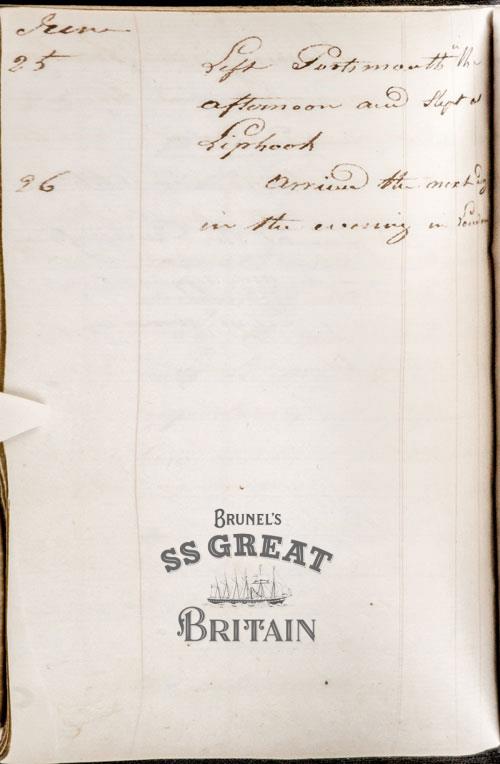 June
25 Left Portsmouth in the
afternoon and Slept at
Liphook
26 arrived the next day
in the evening in London
BRUNEL'S
SS GREAT
BRITAIN